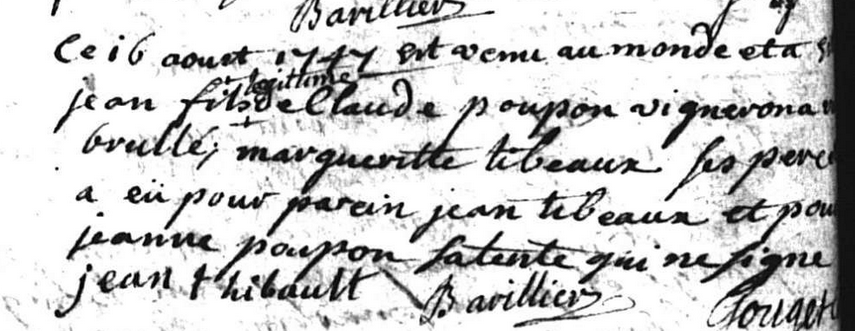 Barilliers
Ce 16 aoust 1747 est venu au monde et a
legitime
jean fils de Claude poupon vigneron a
brullé; margueritte tibeaux ses pere
a eü pour parein jean tibeaux et pou
jeanne poupon satente qui ne signe
jean thibault Barilliers Fouget